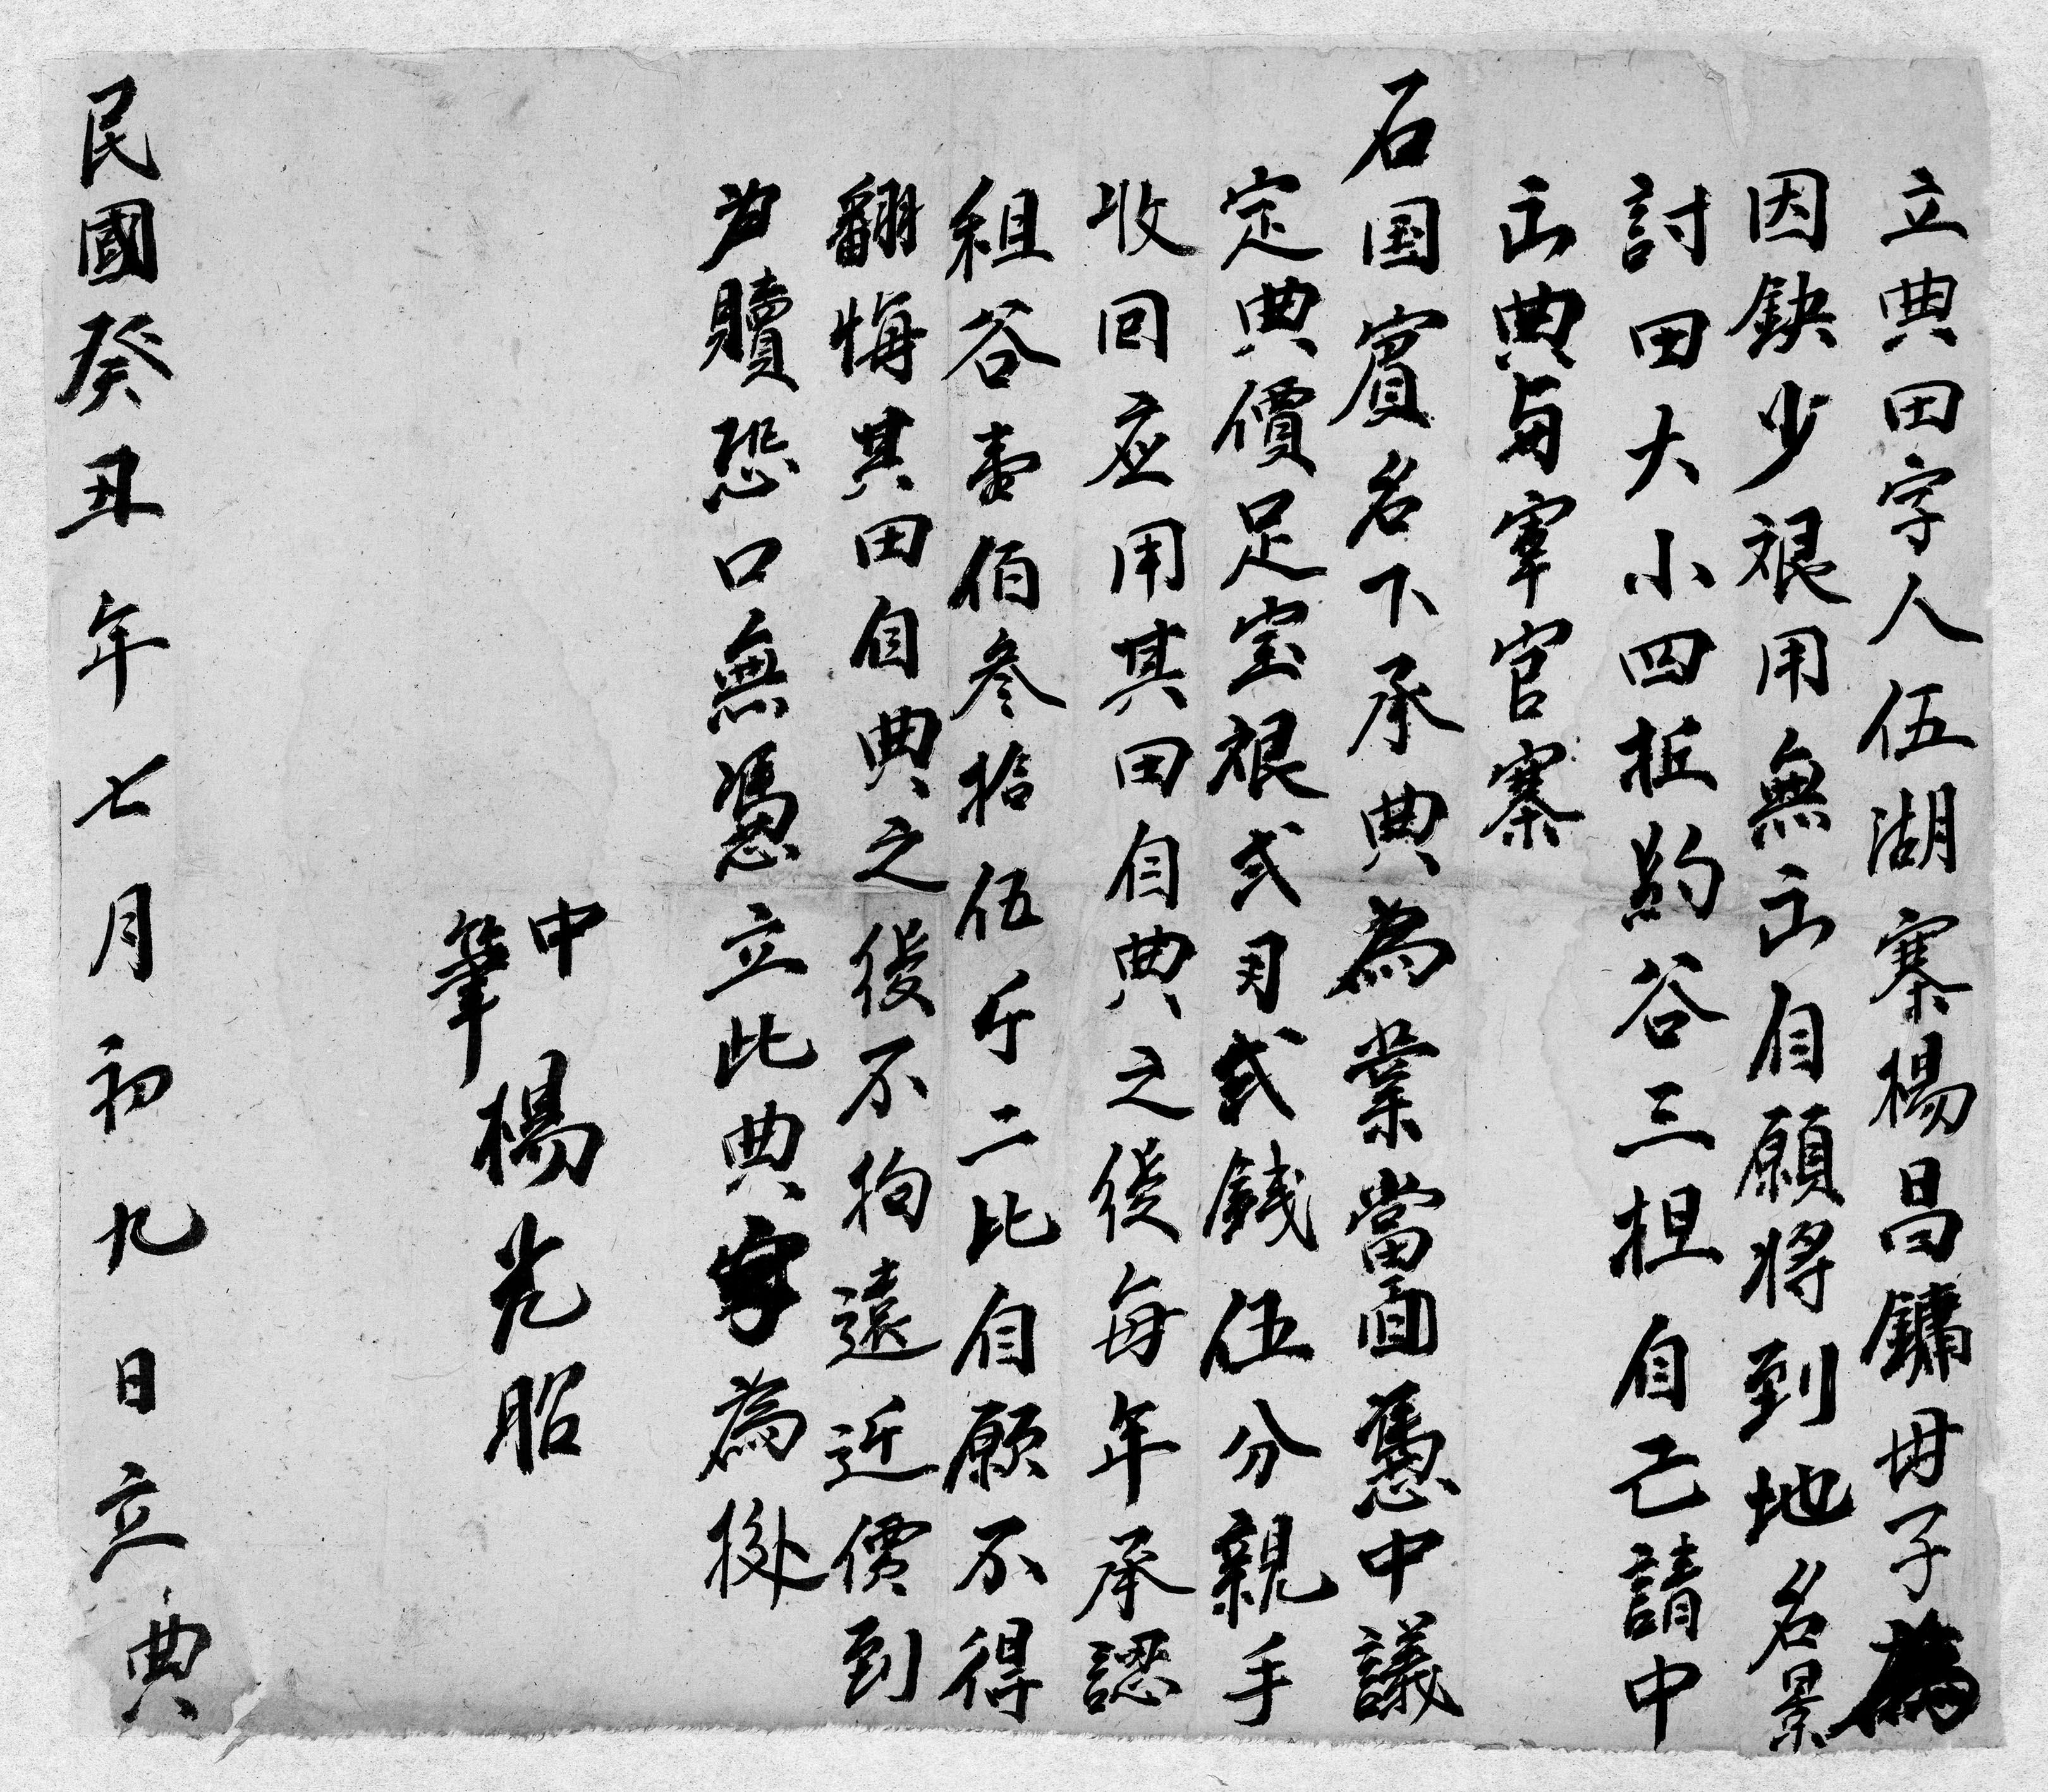 立典田字人伍湖寨楊昌鏞母子為
因缺少根用無出自願將到地名景
討田大小四坵約谷三担自己請中
出典与宰官寨
石国賓名下承典為業當面憑中議
定典價足宝根弍両弍錢伍分親手
收回应用其田自典之後每年承認
租谷壹佰叁拾伍斤二比自願不得
翻悔其田自典之後不拘遠近價到
贖恐口無憑立此典字為挩
中
筆
楊光昭
民國癸丑年七月初九日立典